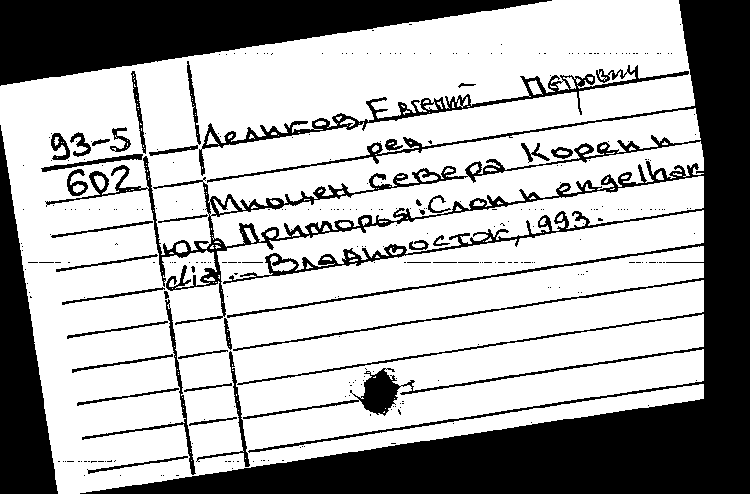 93-5
602
Леликов, Евгений Петрович
ред.
Миоцен севера Кореи и
юга Приморья: Слои и engelhar
dia. – Владивосток, 1993.